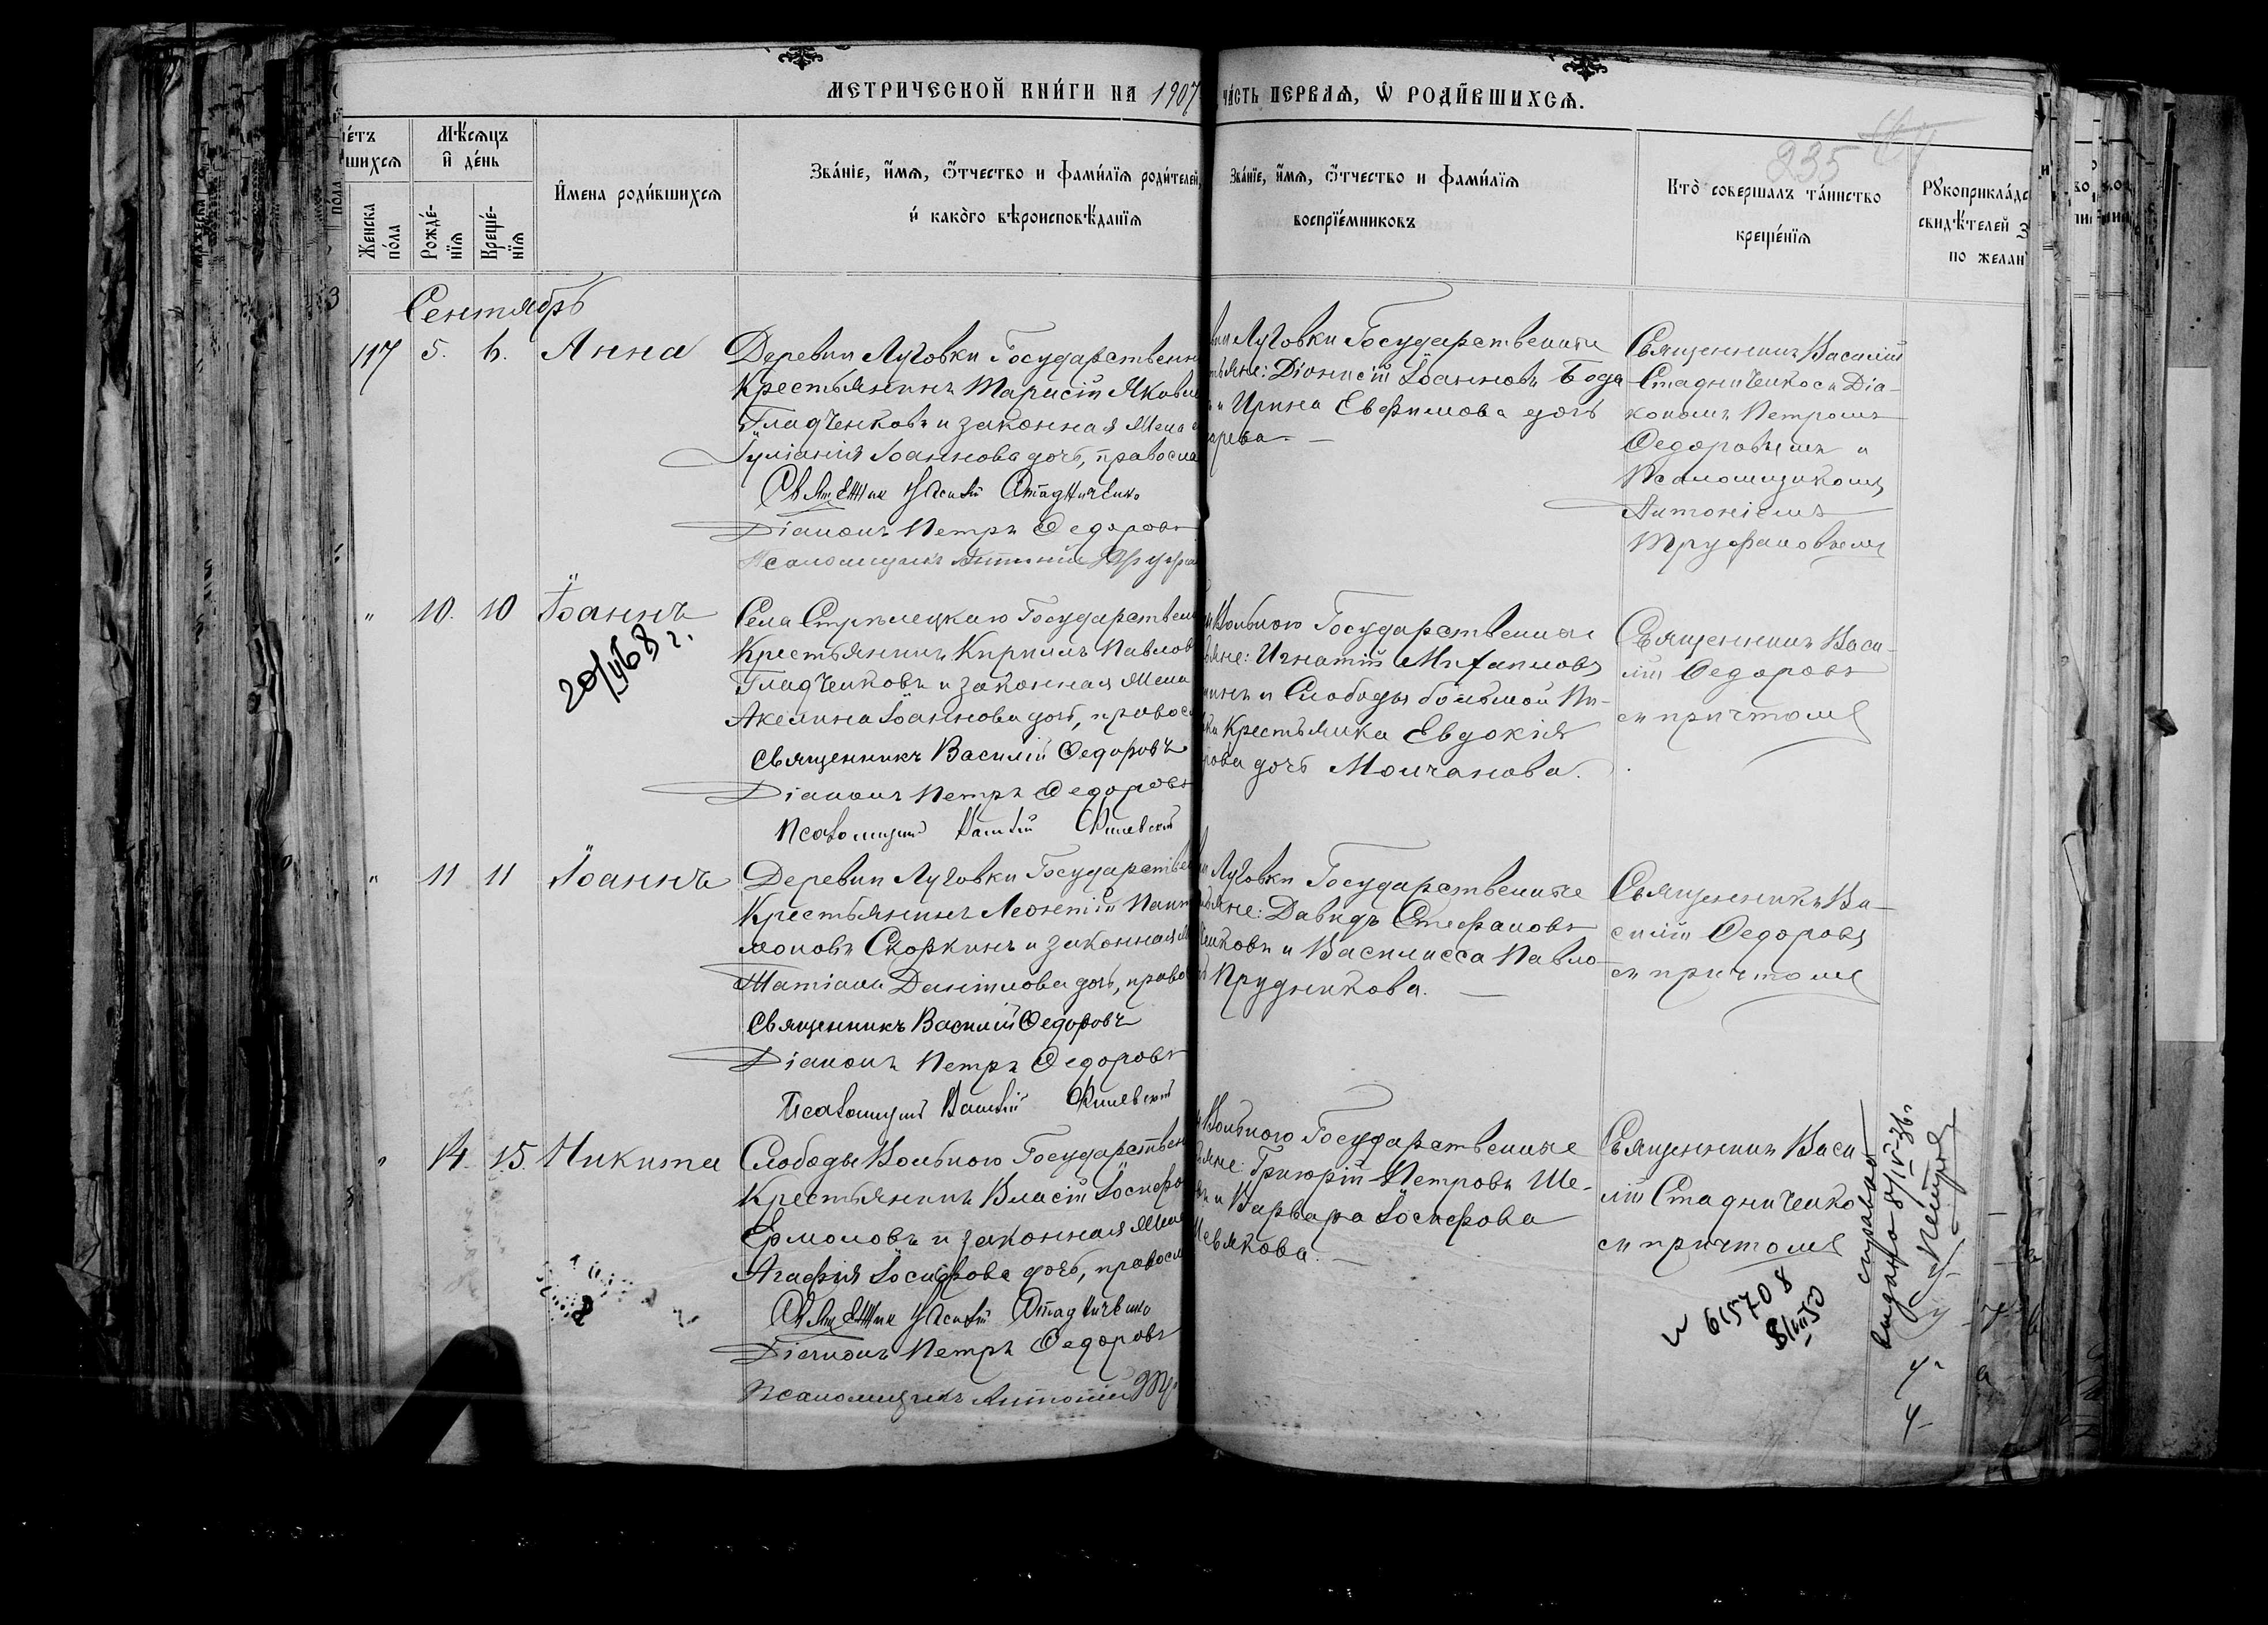 МЕТРИЧЕСКОЙ КНИ́ГИ НА 1907 ЧА́СТЬ ПЕРВАЯ, Ѡ РОДИ́ВШИХСЯ.
235
Мѣ́сяцъ
и де́нь
Женска
по́ла
Рожде́-
нїя
Креще́-
нїя
Имена роди́вшихся
Зва́нїе, и́мя, о́тчество и фами́лїя роди́телей,
и како̀го вѣроисповѣ́данїя
Зва́нїе, и́мя, о́тчество и фами́лїя
воспрїе́мниковъ
Кто̀ соверша́лъ та́инство
креще́нїя
свидѣ́телей
Сентябрь
117 5. 6. Анна
Деревни Луговки Государственн
Крестьянинъ Тарасій Яковле
Гладченковъ и законная жена
Іуліанія Іоаннова дочь, правосла
Священник Василій Стадниченко
Діаконъ Петръ Федоровъ
Псаломщикъ Антоній Труфа
Луговки Государственные
Діонисій Іоанновъ Бода
и Ирина Евфимова дочь
Священникъ Василій
Стадниченко съ Діа-
кономъ Петромъ
Федоровымъ и
Псаломщикомъ
Антоніемъ
Труфановымъ
" 10. 10 Іоаннъ
Села Стрѣлецкаго Государствен
Крестьянинъ Кириллъ Павлов
Гладченковъ и законная жена
Акелина Іоаннова дочь, правосл
Священникъ Василій Федоровъ
Діаконъ Петръ Федоровъ
Псаломщикъ
Вольного Государственные
Игнатій Михаиловъ
и Слободы большой Пи-
Крестьянка Евдокія
дочь Молчанова.
Священникъ Васи-
лій Федоровъ
съ причтомъ
" 11 11 Іоаннъ
Деревни Луговки Государствен
Крестьянинъ Леонтій Пант
моновъ Скоркинъ и законная ж
Татіана Даніилова дочь, право
Священникъ Василій Федоровъ
Діаконъ Петръ Федоровъ
Псаломщикъ
Луговки Государственные
Давидъ Стефановъ
и Василисса Павло
Прудникова.
Священникъ Ва-
силій Федоровъ
съ причтомъ
" 14. 15. Никита
Слободы Вольного Государствен
Крестьянинъ Власій Іосифо
Ермоловъ и законная жена
Агафія Іосифова дочь, правосл
Священник Василій Стадниченко
Діаконъ Петръ Федоровъ
Псаломщикъ Антоній Тру
Вольного Государственные
Григорій Петровъ Ше-
и Варвара Іосифова
Шевякова.
Священникъ Васи
лій Стадниченко
съ причтомъ
615708
справка
выдана 8/IV-36г